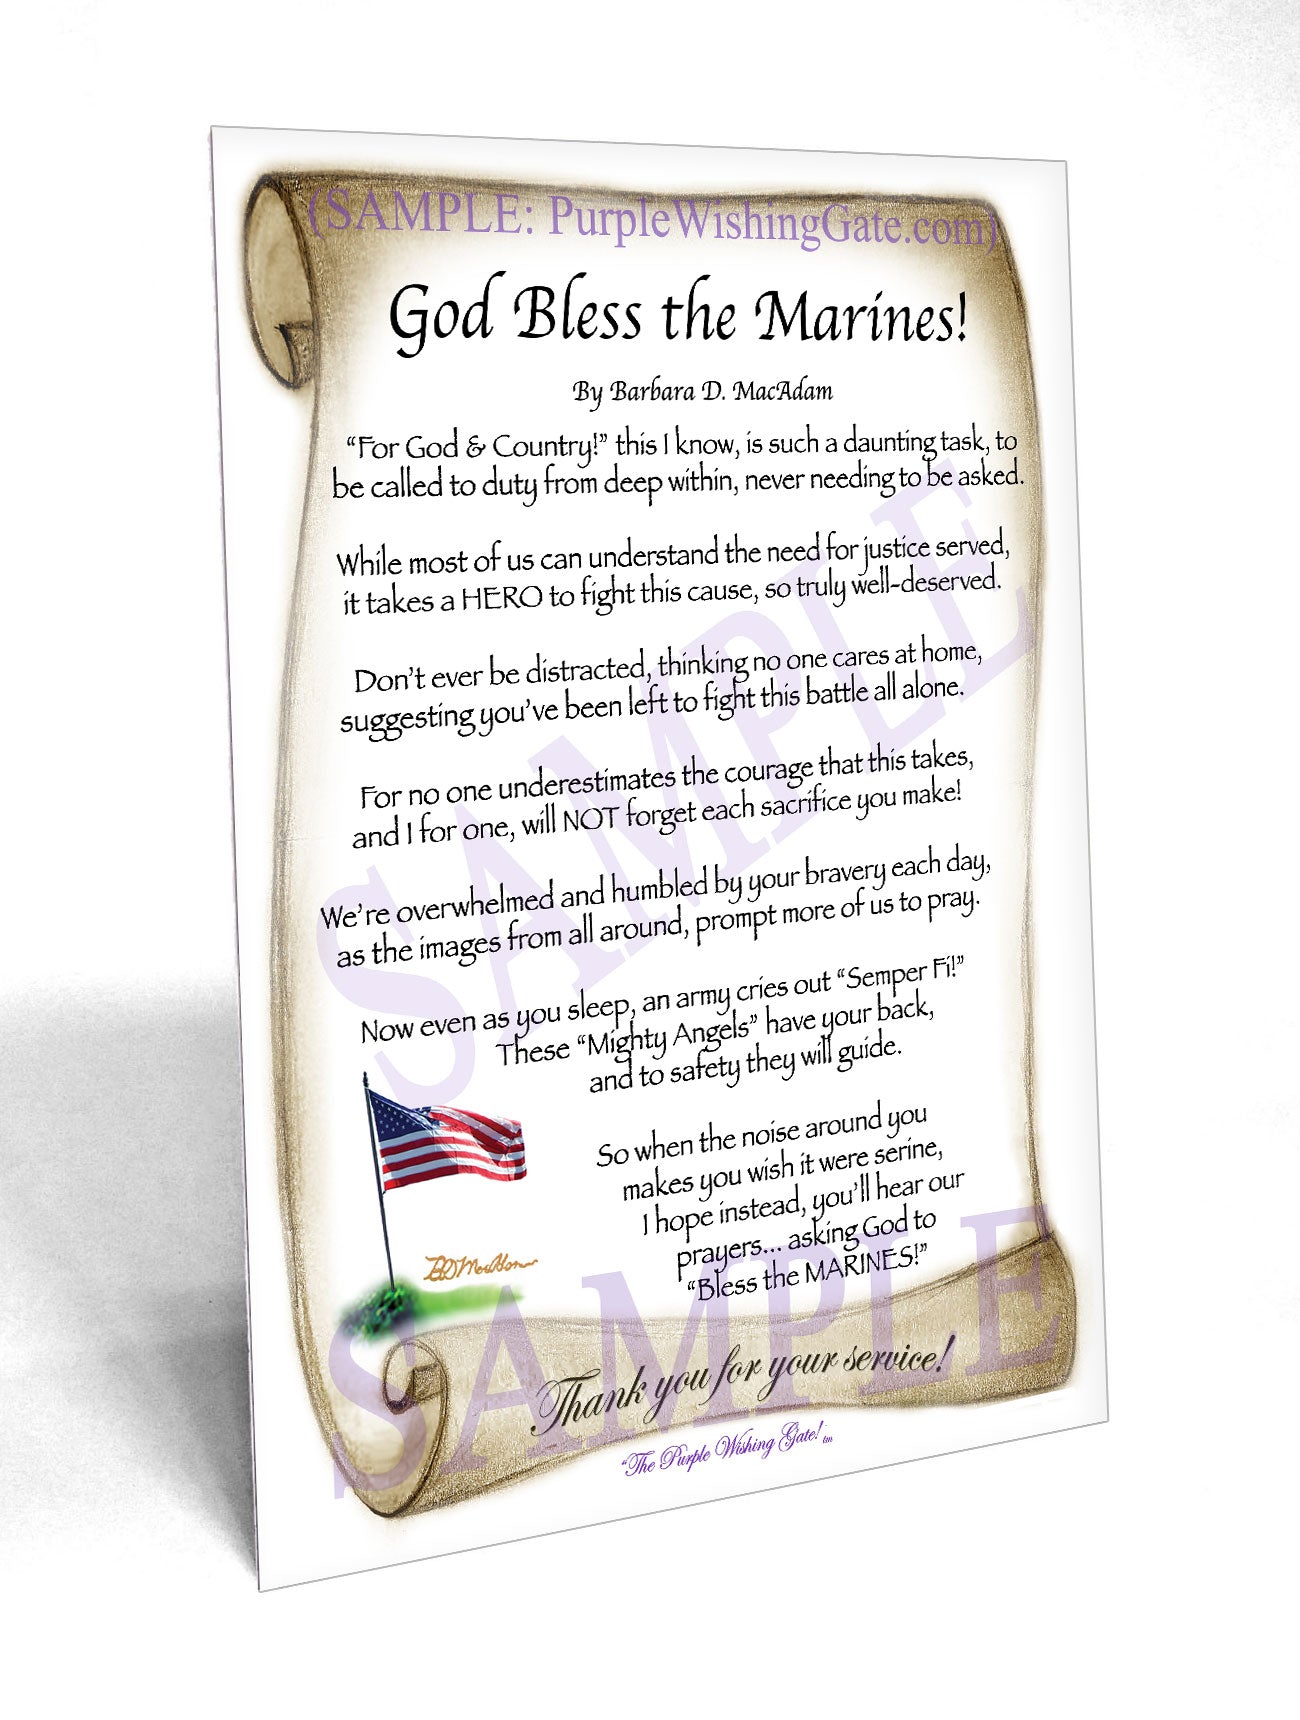 (SAMPLE: PurpleWishingGate.com)
God Bless the Marines!
By Barbara D. MacAdam
“For God & Country!” this I know, is such a daunting task, to
be called to duty from deep within, never needing to be asked.
While most of us can understand the need for justice served,
it takes a HERO to fight this cause, so truly well-deserved.
Don’t ever be distracted, thinking no one cares at home,
suggesting you’ve been left to fight this battle all alone.
For no one underestimates the courage that this takes,
and I for one, will NOT forget each sacrifice you make!
We’re overwhelmed and humbled by your bravery each day,
as the images from all around, prompt more of us to pray.
Now even as you sleep, an army cries out “Semper Fi!”
These “Mighty Angels” have your back,
and to safety they will guide.
So when the noise around you
makes you wish it were serine,
I hope instead, you’ll hear our
prayers... asking God to
“Bless the MARINES!”
BDMacAdam
Thank you for your service!
“The Purple Wishing Gate! tm
SAMPLE
SAMPLE